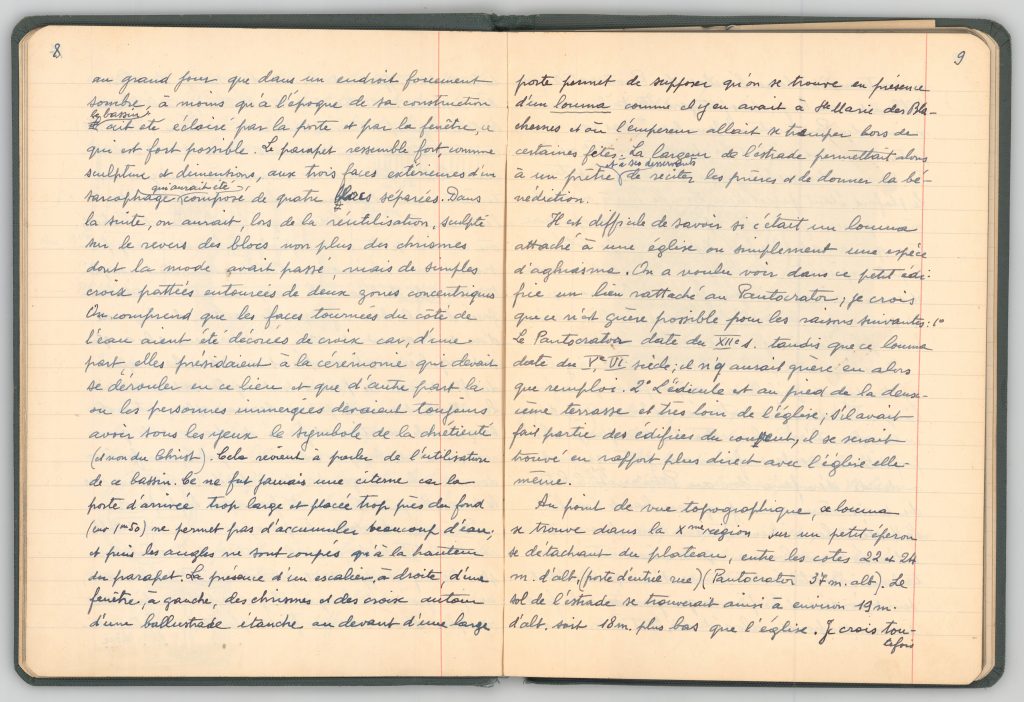 8
au grand jour que dans un endroit forcement
sombre, à moins qu'à l'époque de sa construction
le bassin
ait été éclairé par la porte et par la fenêtre, ce
qui est fort possible. Le parapet ressemble fort, comme
sculpture et dimensions, aux trois faces extérieures d'un
qui aurait été
sarcophage composé de quatre blocs séparées. Dans
la suite, on aurait, lors de la réutilisation, sculpté
sur le revers des blocs non plus des chrismes
dont la mode avait passé, mais de simples
croix pattées entourées de deux zones concentriques
On comprend que les faces tournées du côté de
l'eau aient été décorées de croix car, d'une
part, elles présidaient à la cérémonie qui devait
se dérouler en ce lieu et que d'autre part la
ou les personnes immergées devaient toujours
avoir sous les yeux le symbole de la chrétienté
(et non du Christ). Cela revient à parler de l'utilisation
de ce bassin. Ce ne fut jamais une citerne car la
porte d'arrivée trop large et placée trop près du fond
(sur 1m50) ne permet pas d'accumuler beaucoup d'eau;
et puis les angles ne sont coupés qu'à la hauteur
du parapet. La présence d'un escalier, à droite, d'une
fenêtre, à gauche, des chrismes et des croix autour
d'une ballustrade étanche au devant d'une large
9
porte permet de supposer qu'on se trouve en présence
d'un louma comme il y en avait à Ste Marie des Bla-
chernes et où l'empereur allait se tremper lors de
certaines fêtes. La largeur de l'estrade permettait alors
et à ses desservants
à un prêtre de réciter les prières et de donner la bé-
nédiction.
Il est difficile de savoir si c'était un louma
attaché à une église ou simplement une espèce
d'aghiasma. On a voulu voir dans ce petit édi-
fice un lieu rattaché au Pantocrator; je crois
que ce n'est guère possible pour les raisons suivantes: 1°
Le Pantocrator date du XIIe s. tandis que ce louma
date du Ve, VI siècle; il n'y aurait guère eu alors
que remploi. 2° L'édicule est au pied de la deux-
ième terrasse et très loin de l'église; s'il avait
fait partie des édifices du couvent, il se serait
trouvé en rapport plus direct avec l'église elle-
même.
Au point de vue topographique, ce louma
se trouve dans la Xme région sur un petit éperon
se détachant du plateau, entre les cotes 22 et 24
m. d'alt. (porte d'entrée rue) (Pantocrator 37 m. alt). Le
sol de l'estrade se trouverait ainsi à environ 19 m.
d'alt. soit 18 m. plus bas que l'église. Je crois tou-
tefois